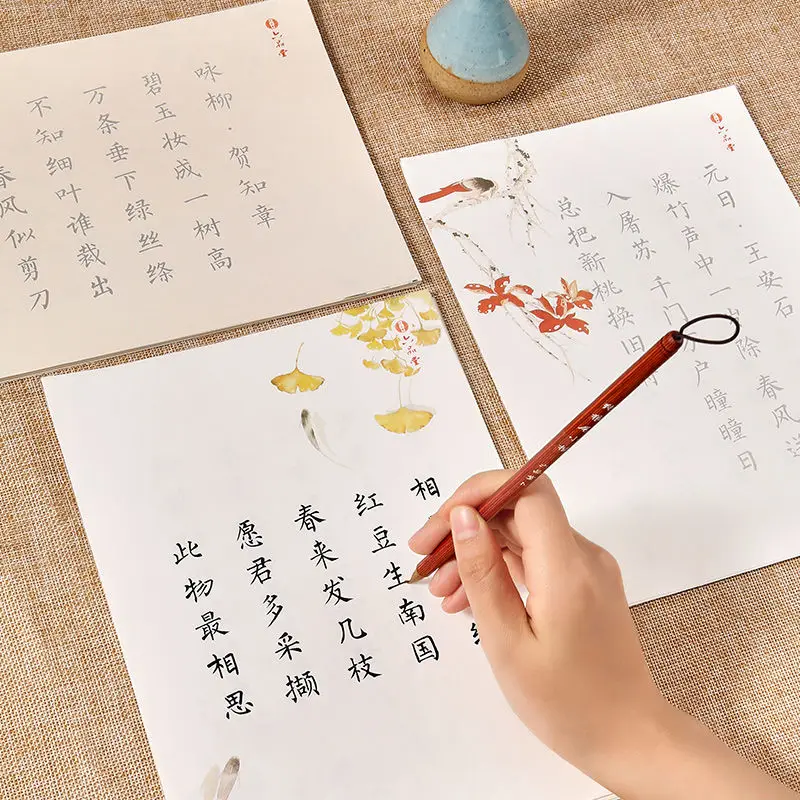 六品堂
咏柳·贺知章
碧玉妆成一树高
万条垂下绿丝绦
不知细叶谁裁出
春风似剪刀
六品堂
元日·王安石
爆竹声中一 除 春风送
入屠苏 千门 户曈曈日
总把新桃换旧
六品堂
相
红豆生南国
春来发几枝
愿君多采撷
此物最相思